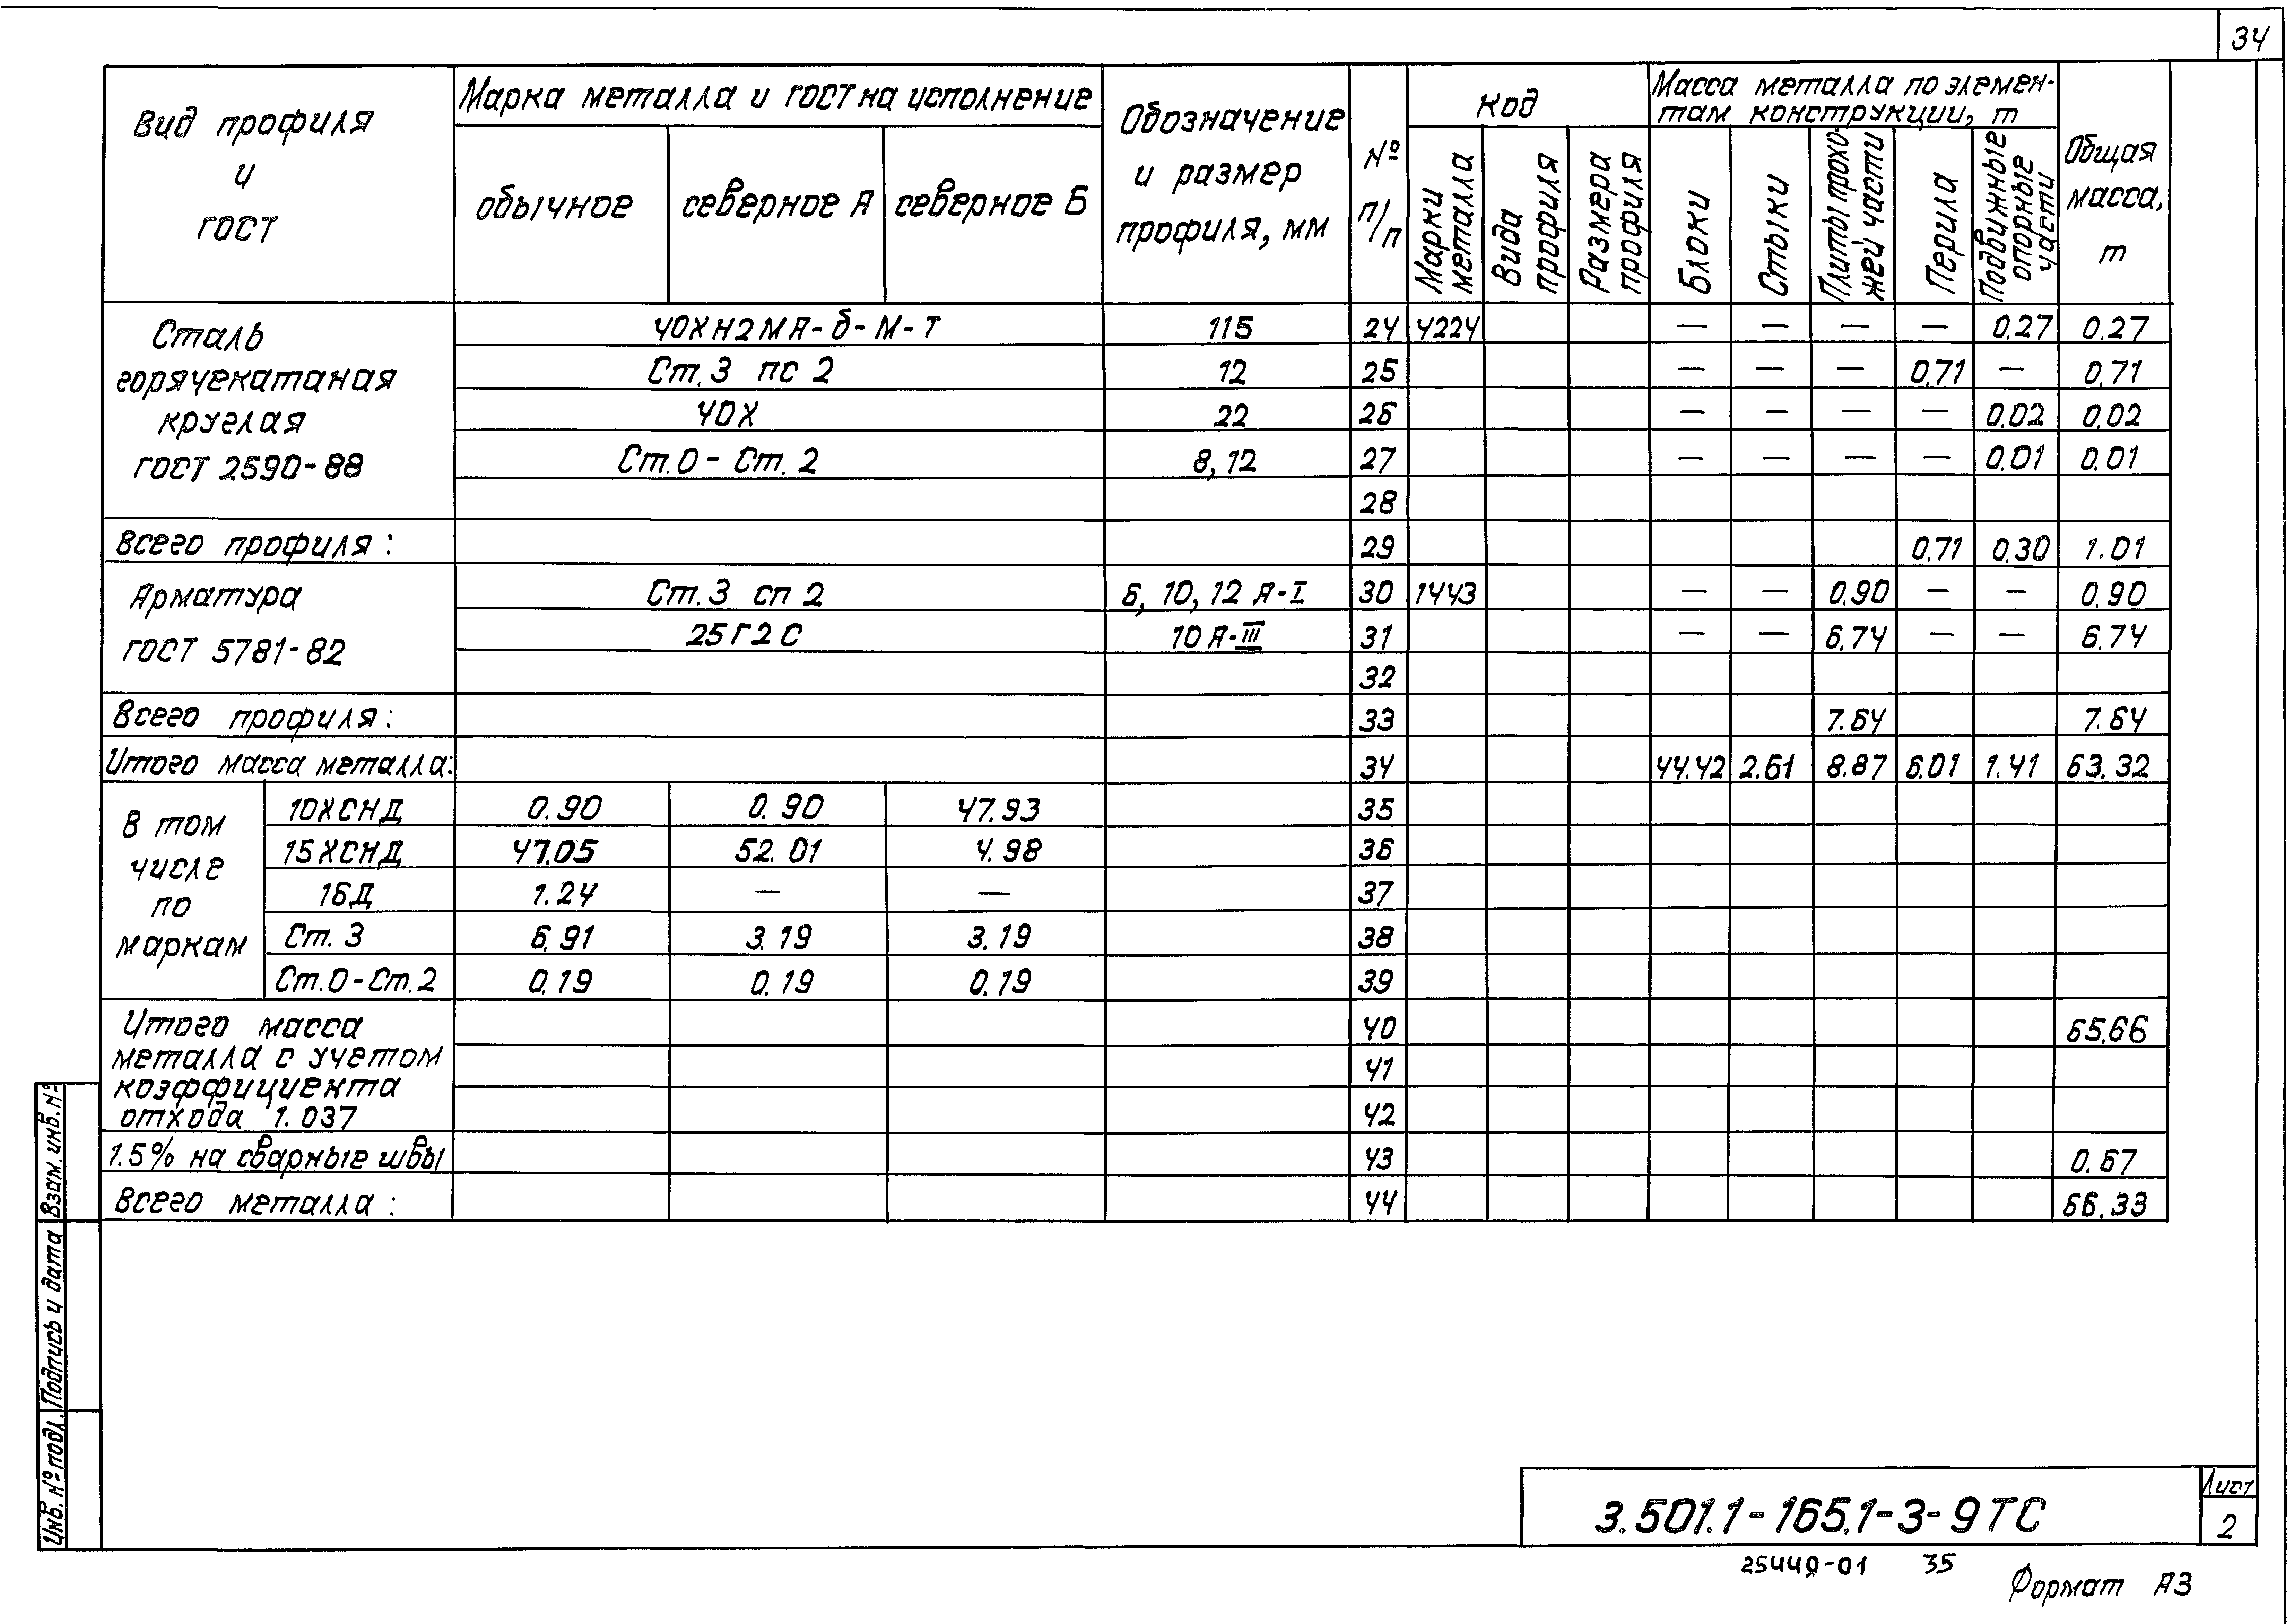 34
Вид профиля и ГОСТ
Марка металла и ГОСТ на исполнение
обычное
северное А
северное Б
Обозначение и размер профиля, мм
№ п/п
Код
Марки металла
Вида профиля
Размера профиля
Масса металла по элемен-
там конструкции, т
Блоки
Стыки
Плиты прохо-
жей части
Перила
Подвижные опорные части
Общая масса, т
Сталь горячекатаная круглая ГОСТ 2590-88
40ХН2МА-б-М-Т 115 24 4224 — — — — 0.27 0.27
Ст.3 пс 2 12 25 — — — 0.71 — 0.71
40Х 22 26 — — — — 0.02 0.02
Ст.0-Ст.2 8,12 27 — — — — 0.01 0.01
28
Всего профиля: 29 0.71 0.30 1.01
Арматура ГОСТ 5781-82
Ст.3 сп 2 6, 10, 12 А-I 30 1443 — — 0.90 — — 0.90
25Г2С 10 А-III 31 — — 6.74 — — 6.74
32
Всего профиля: 33 7.64 7.64
Итого масса металла: 34 44.42 2.61 8.87 6.01 1.41 63.32
В том числе по маркам
10ХСНД 0.90 0.90 47.93 35
15ХСНД 47.05 52.01 4.98 36
16Д 1.24 — — 37
Ст.3 6.91 3.19 3.19 38
Ст.0-Ст.2 0.19 0.19 0.19 39
Итого масса
металла с учетом
коэффициента
отхода 1.037
40 65.66
41
42
1.5% на сварные швы 43 0.67
Всего металла: 44 66.33
Взам. инв. №
Подпись и дата
Инв. № подл.
3.501.1-165.1-3-9ТС
Лист
2
25449-01 35
Формат А3